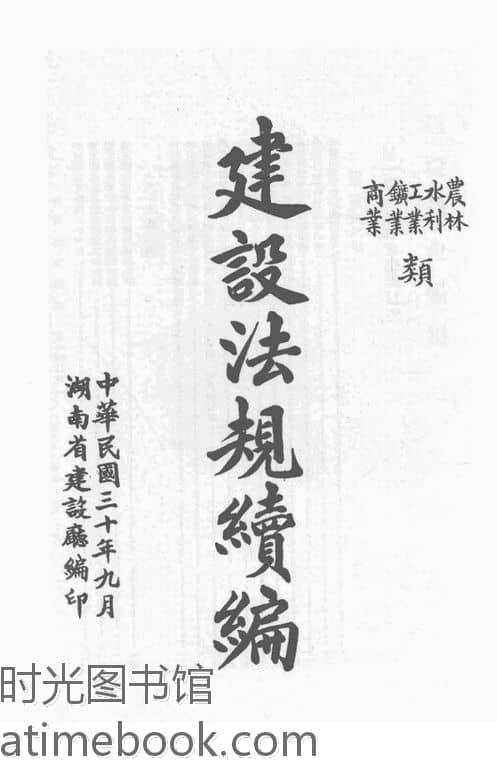 農林
水利
工業
鑛業
商業
類
建設法規續編
中華民國三十年九月
湖南省建設廳編印
时光图书馆
atimebook.com